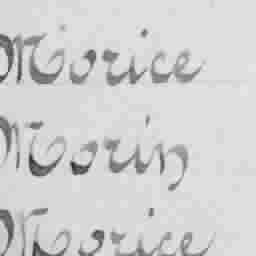 Morice
Morin
Morice